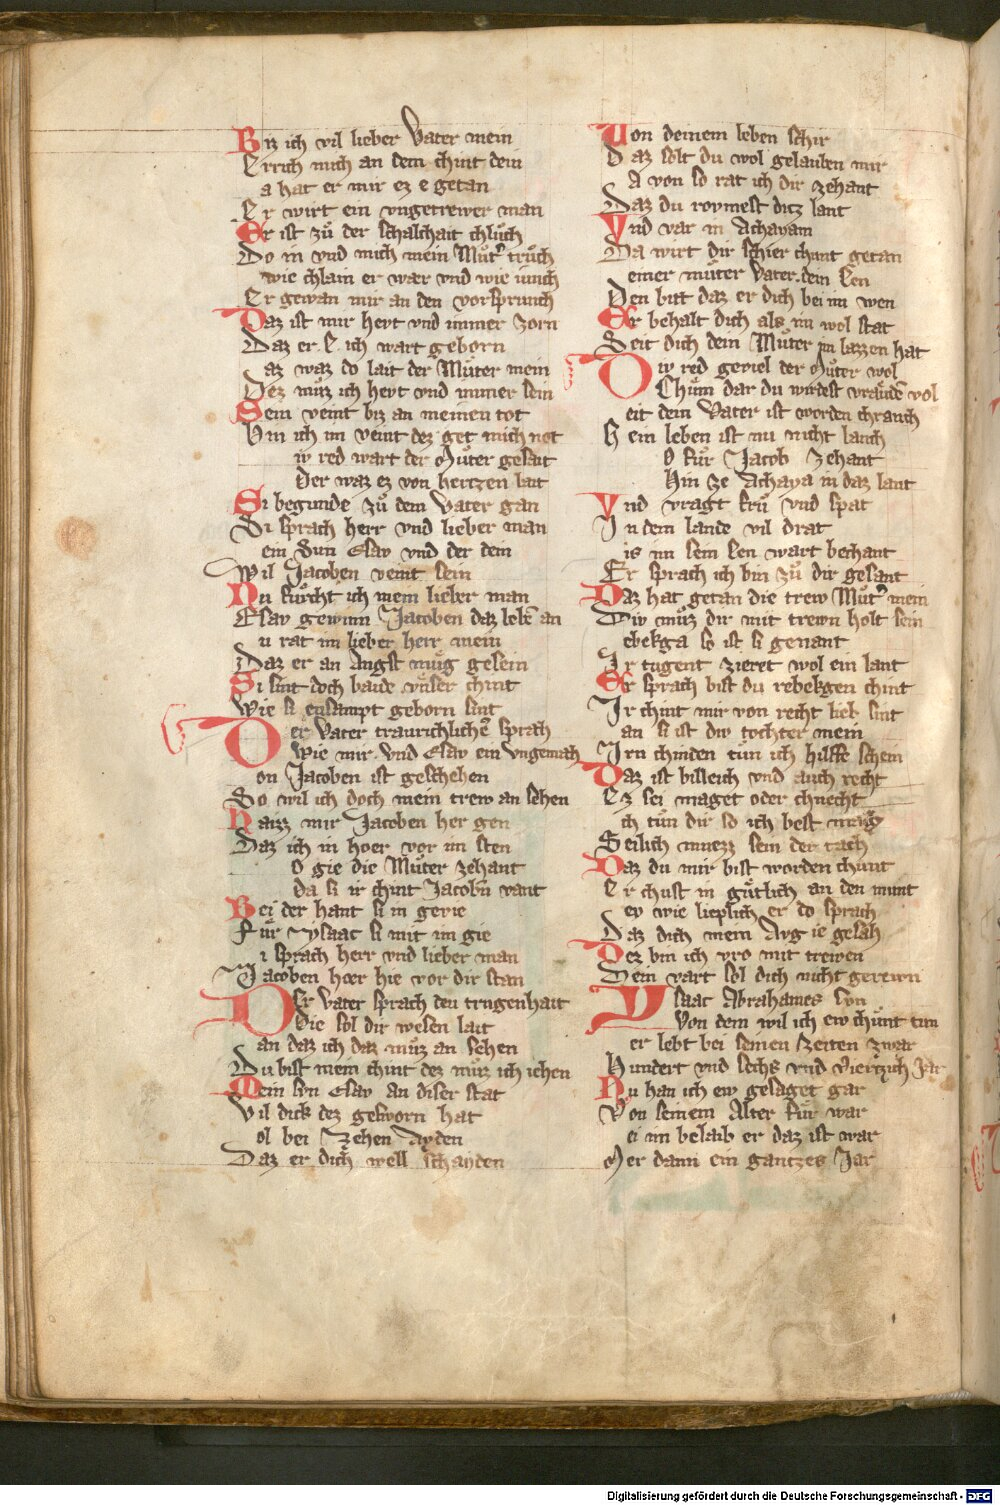 Biz ich vil lieber Vater mein
Errich mich an dem chint dein
a hat er mir ez e getan
Er wirt ein vngetrewer man
Er ist zů der schalchait chlůch
Do in vnd mich mein Můt͛ trůch
wie chlain er wær vnd wie iunch
Er gewan mir an den vorsprunch
Daz ist mir hevt vnd immer zorn
Daz er E ich wart geborn
az waz do lait der Můter mein
Dez můz ich hevt vnd immer sein
Sein veint biz an meinen tot
Bin ich im veint dez get mich not
iv red wart der Můter gesait
Der waz ez von hertzen lait
Si begunde zů dem Vater gan
Si sprach herr vnd lieber man
ein Sun Esav vnd der dein
Wil Jacoben veint sein
Nu fürcht ich mein lieber man
Esav gewinn Jacoben daz lebē an
u rat im lieber herr mein
Daz er an Angst můg gesein
Si sint doch baide vnser chint
Wie si ensampt geborn sint
Der Vater traurichlichē sprach
Wie mir vnd Esav ein vngemach
on Jacoben ist geschehen
So wil ich doch mein trew an sehen
Haizz mir Jacoben her gen
Daz ich in hoer vor im sten
o gie die Můter zehant
da si ir chint Jacobn vant
Bei der hant si in gevie
Für ysaac si mit im gie
i sprach herr vnd lieber man
Jacoben hœr hie vor dir stan
Der Vater sprach den trugenhait
Die sol dir wesen lait
an daz ich daz můz an sehen
Du bist mein chint dez můz ich iehen
Mein svn Esav an diser stat
Vil dick dez gesworn hat
ol bei zehen Ayden
Daz er dich well schayden
Von deinem leben schir
Daz solt du wol gelauben mir
A von so rat ich dir zehant
Daz du rovmest ditz lant
Vnd var in Achayam
Da wirt dir schier chunt getan
einer můter Vater dein Een
Den bitt daz er dich bei im wen
Er behalt dich als im wol stat
Seit dich dein Můter im lazzen hat
Div red geviel der Můter wol
Chům dar du wirdest vräudē vol
eit dein Vater ist worden chranch
Sein leben ist nu nicht lanch
O für Jacob zehant
Hin ze Achaya in daz lant
Vnd vragt frů vnd spat
In dem lande vil drat
is im sein Een wart bechant
Er sprach ich bin zů dir gesant
Daz hat getan die trew Můt͛ mein
Div můz dir mit trewn holt sein
ebekga so ist si genant
Ir tugent zieret wol ein lant
Er sprach bist du rebekgen chint
Ir chint mir von recht lieb sint
an si ist div tochter mein
Irn chinden tůn ich hilffe schein
Daz ist billeich vnd auch recht
Ez sei maget oder chnecht
ich tůn dir so ich best mag
Seilich muezz sein der tach
Daz du mir bist worden chunt
Er chust in gůtlich an den munt
ey wie lieplich er do sprach
Daz dich mein Avg ie gesah
Dez bin ich vro mit trewen
Dein vart sol dich nicht gerewn
Ysaac Abrahames svn
Von dem wil ich ew chunt tun
er lebt bei seinen zeiten zwar
Hundert vnd sechs vnd viertzich Jar
Nu han ich ew gesaget gar
Von seinem Alter für war
ei im belaib er daz ist war
Mer dann ein gantzes Jar
Digitalisierung gefördert durch die Deutsche Forschungsgemeinschaft - DFG